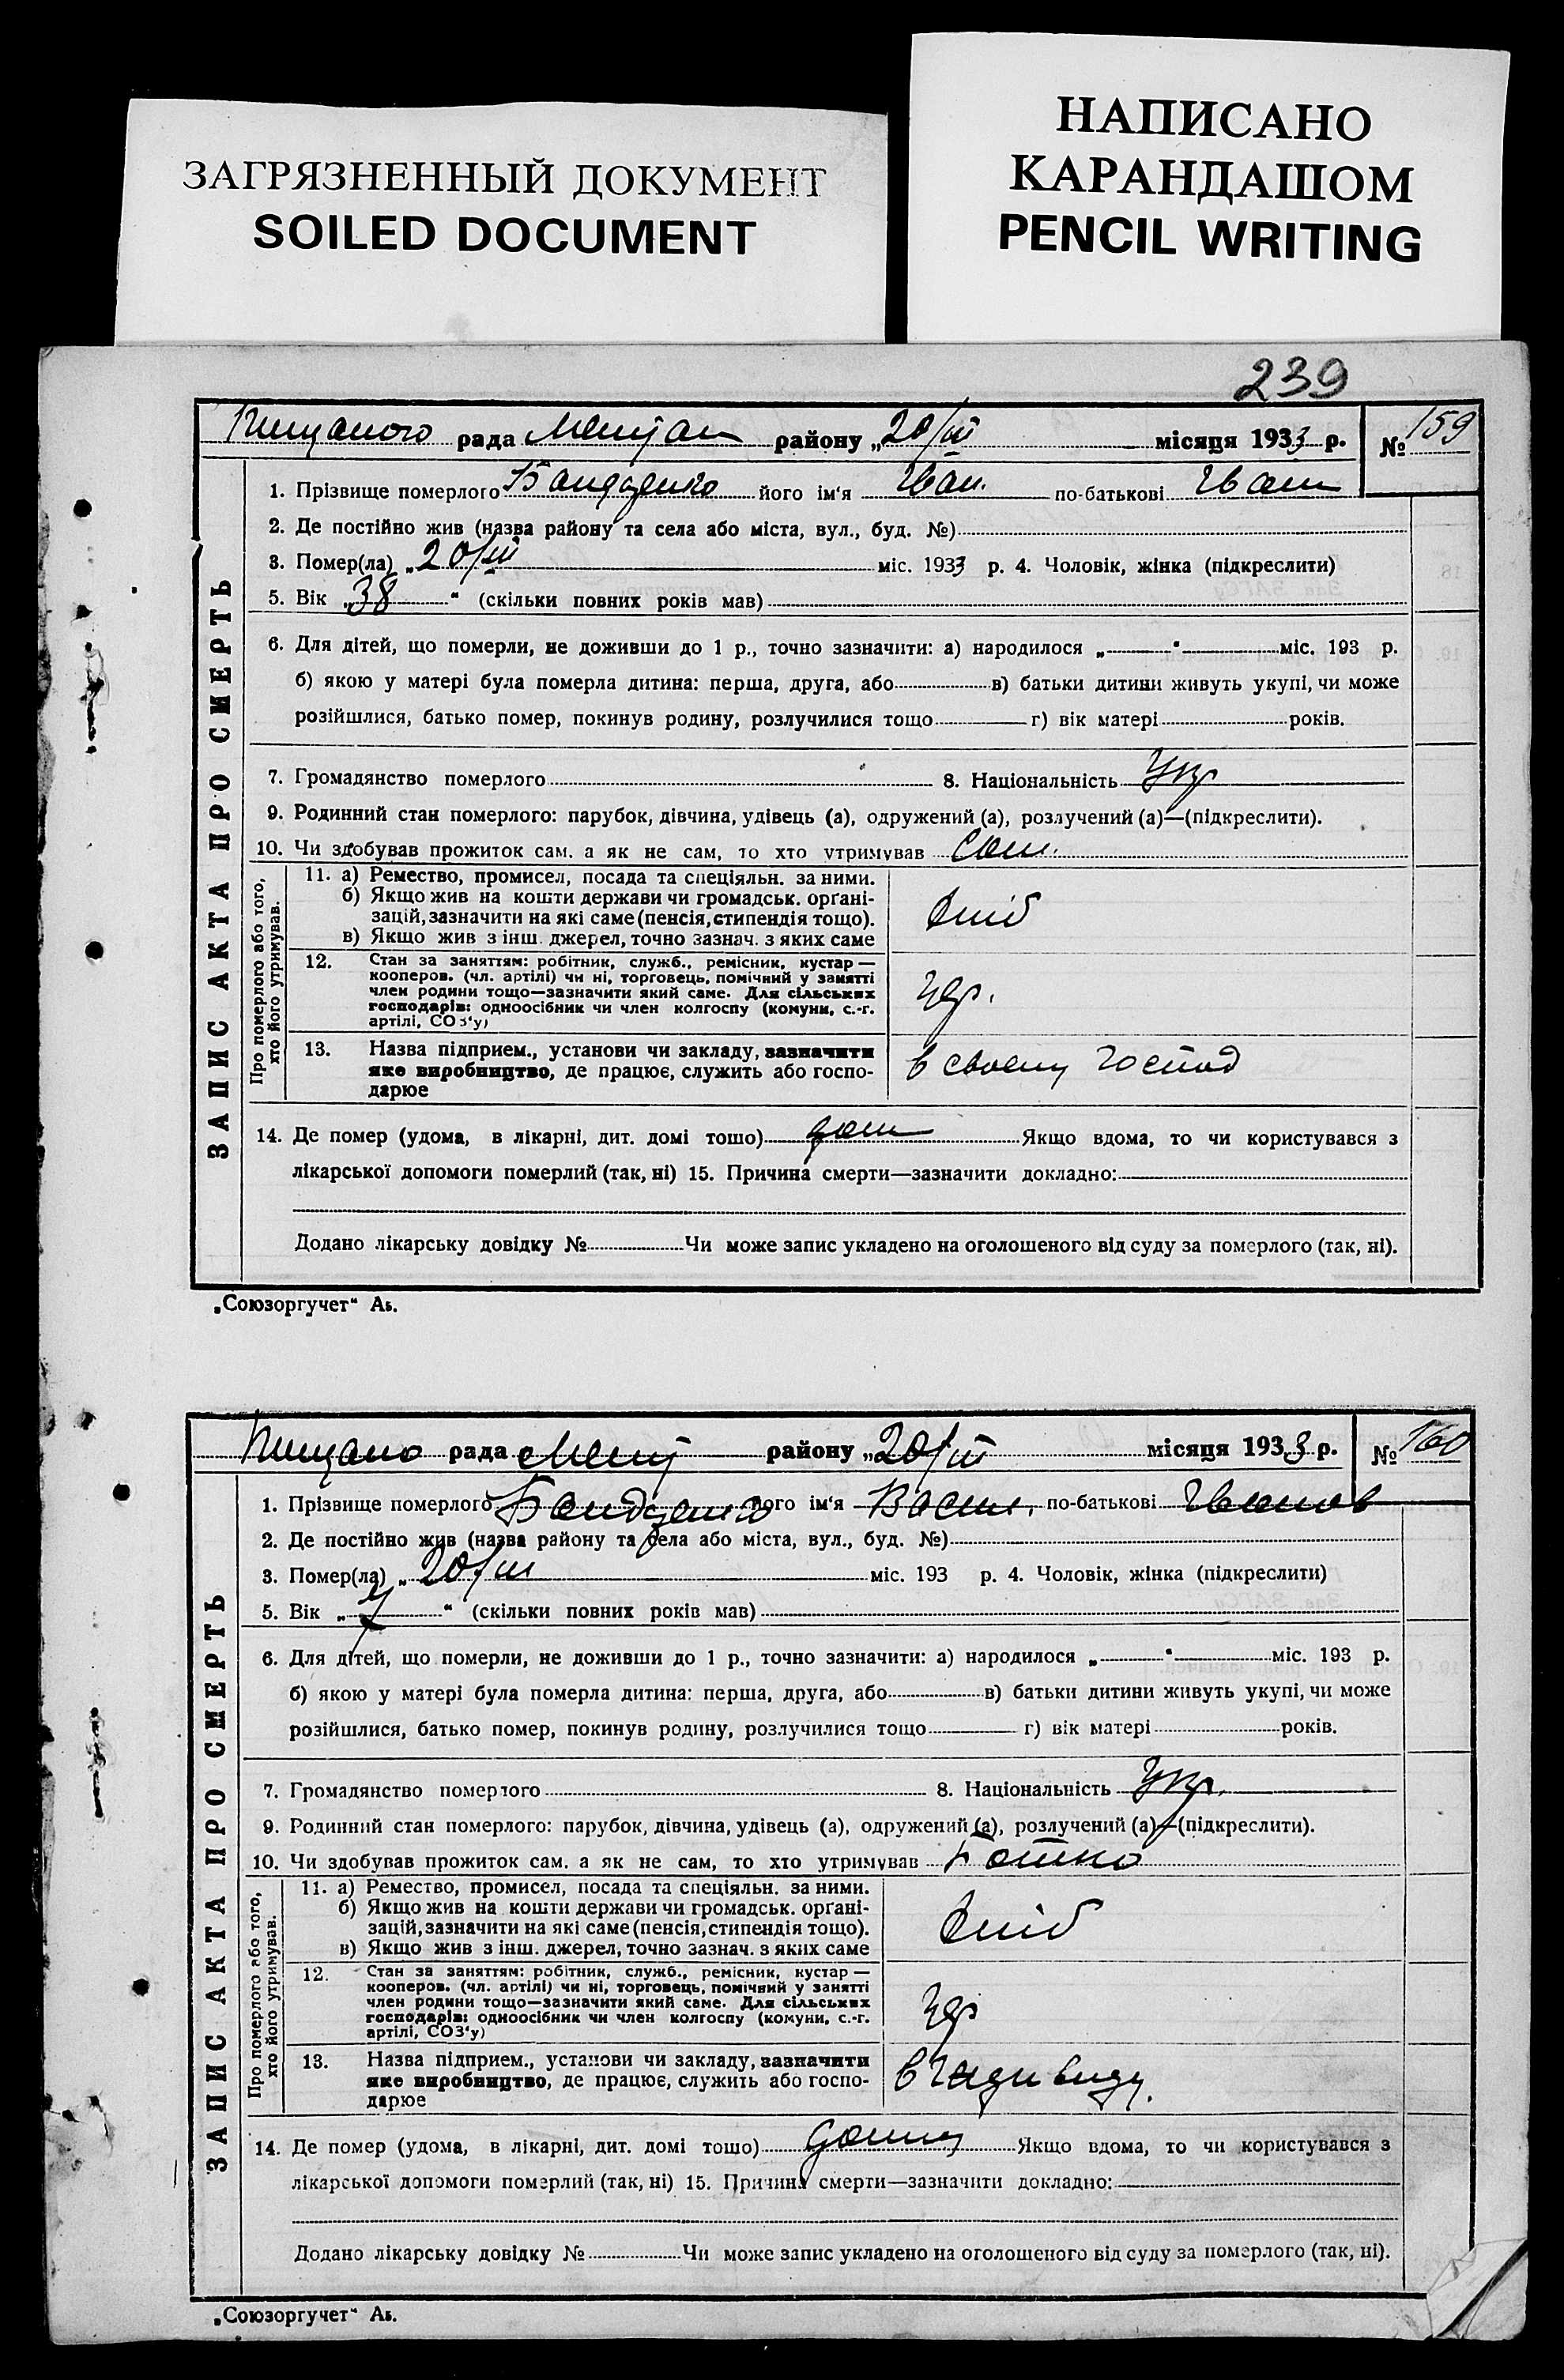 ЗАГРЯЗНЕННЫЙ ДОКУМЕНТ
SOILED DOCUMENT
НАПИСАНО
КАРАНДАШОМ
PENCIL WRITING
239
рада районy „20/III місяця 1933 р. № 159
ЗАПИС АКТА ПРО СМЕРТЬ
1. Прізвище померлого його ім'я Іван. по-батькові Іван
2. Де постійно жив (назва району та села або міста, вул., буд. №)
3. Помер(ла) „20/III міс. 1933 р. 4. Чоловік, жінка (підкреслити)
5. Вік „38" (скільки повних років мав)
6. Для дітей, що померли, не доживши до 1 р., точно зазначити: а) народилося „ " міс. 193 р.
б) якою у матері була померла дитина: перша, друга, або в) батьки дитини живуть укупі, чи може
розійшлися, батько помер, покинув родину, розлучилися тощо г) вік матері років.
7. Громадянство померлого 8. Національність Укр
9. Родинний стан померлого: парубок, дівчина, удівець (а), одружений (а), розлучений (а)—(підкреслити).
10. Чи здобував прожиток сам. а як не сам, то хто утримував Сам.
Про померлого або того, хто його утримував.
11. а) Ремество, промисел, посада та спеціяльн. за ними.
б) Якщо жив на кошти держави чи громадськ. орґані-
зацій, зазначити на які саме (пенсія, стипендія тощо).
в) Якщо жив з інш. джерел, точно зазнач. з яких саме
12. Стан за заняттям: робітник, служб., ремісник, кустар —
кооперов. (чл. артілі) чи ні, торговець, помічний у занятті
член родини тощо—зазначити який саме. Для сільських
господарів: одноосібник чи член колгоспу (комуни, с.-г.
артілі, СОЗ'у)
13. Назва підприєм., установи чи закладу, зазначити
яке виробництво, де працює, служить або госпо-
дарює
в своему господ
14. Де помер (удома, в лікарні, дит. домі тошо) дом Якщо вдома, то чи користувався з
лікарської допомоги померлий (так, ні) 15. Причина смерти—зазначити докладно:
Додано лікарську довідку № Чи може запис укладено на оголошеного від суду за померлого (так, ні).
„Союзоргучет" Аь.
рада району „20/III місяця 1933 р. № 160
ЗАПИС АКТА ПРО СМЕРТЬ
1. Прізвище померлого його ім'я Васил. по-батькові Іванов
2. Де постійно жив (назва району та села або міста, вул., буд. №)
3. Помер(ла) „20/III міс. 193 р. 4. Чоловік, жінка (підкреслити)
5. Вік „7" (скільки повних років мав)
6. Для дітей, що померли, не доживши до 1 р., точно зазначити: а) народилося „ " міс. 193 р.
б) якою у матері була померла дитина: перша, друга, або в) батьки дитини живуть укупі, чи може
розійшлися, батько помер, покинув родину, розлучилися тощо г) вік матері років.
7. Громадянство померлого 8. Національність Укр.
9. Родинний стан померлого: парубок, дівчина, удівець (а), одружений (а), розлучений (а)—(підкреслити).
10. Чи здобував прожиток сам. а як не сам, то хто утримував Батько
Про померлого або того, хто його утримував.
11. а) Ремество, промисел, посада та спеціяльн. за ними.
б) Якщо жив на кошти держави чи громадськ. орґані-
зацій, зазначити на які саме (пенсія, стипендія тощо).
в) Якщо жив з інш. джерел, точно зазнач. з яких саме
12. Стан за заняттям: робітник, служб., ремісник, кустар —
кооперов. (чл. артілі) чи ні, торговець, помічний у занятті
член родини тощо—зазначити який саме. Для сільських
господарів: одноосібник чи член колгоспу (комуни, с.-г.
артілі, СОЗ'у)
13. Назва підприєм., установи чи закладу, зазначити
яке виробництво, де працює, служить або госпо-
дарює
14. Де помер (удома, в лікарні, дит. домі тошо) дому Якщо вдома, то чи користувався з
лікарської допомоги померлий (так, ні) 15. Причина смерти—зазначити докладно:
Додано лікарську довідку № Чи може запис укладено на оголошеного від суду за померлого (так, ні).
„Союзоргучет" Аь.